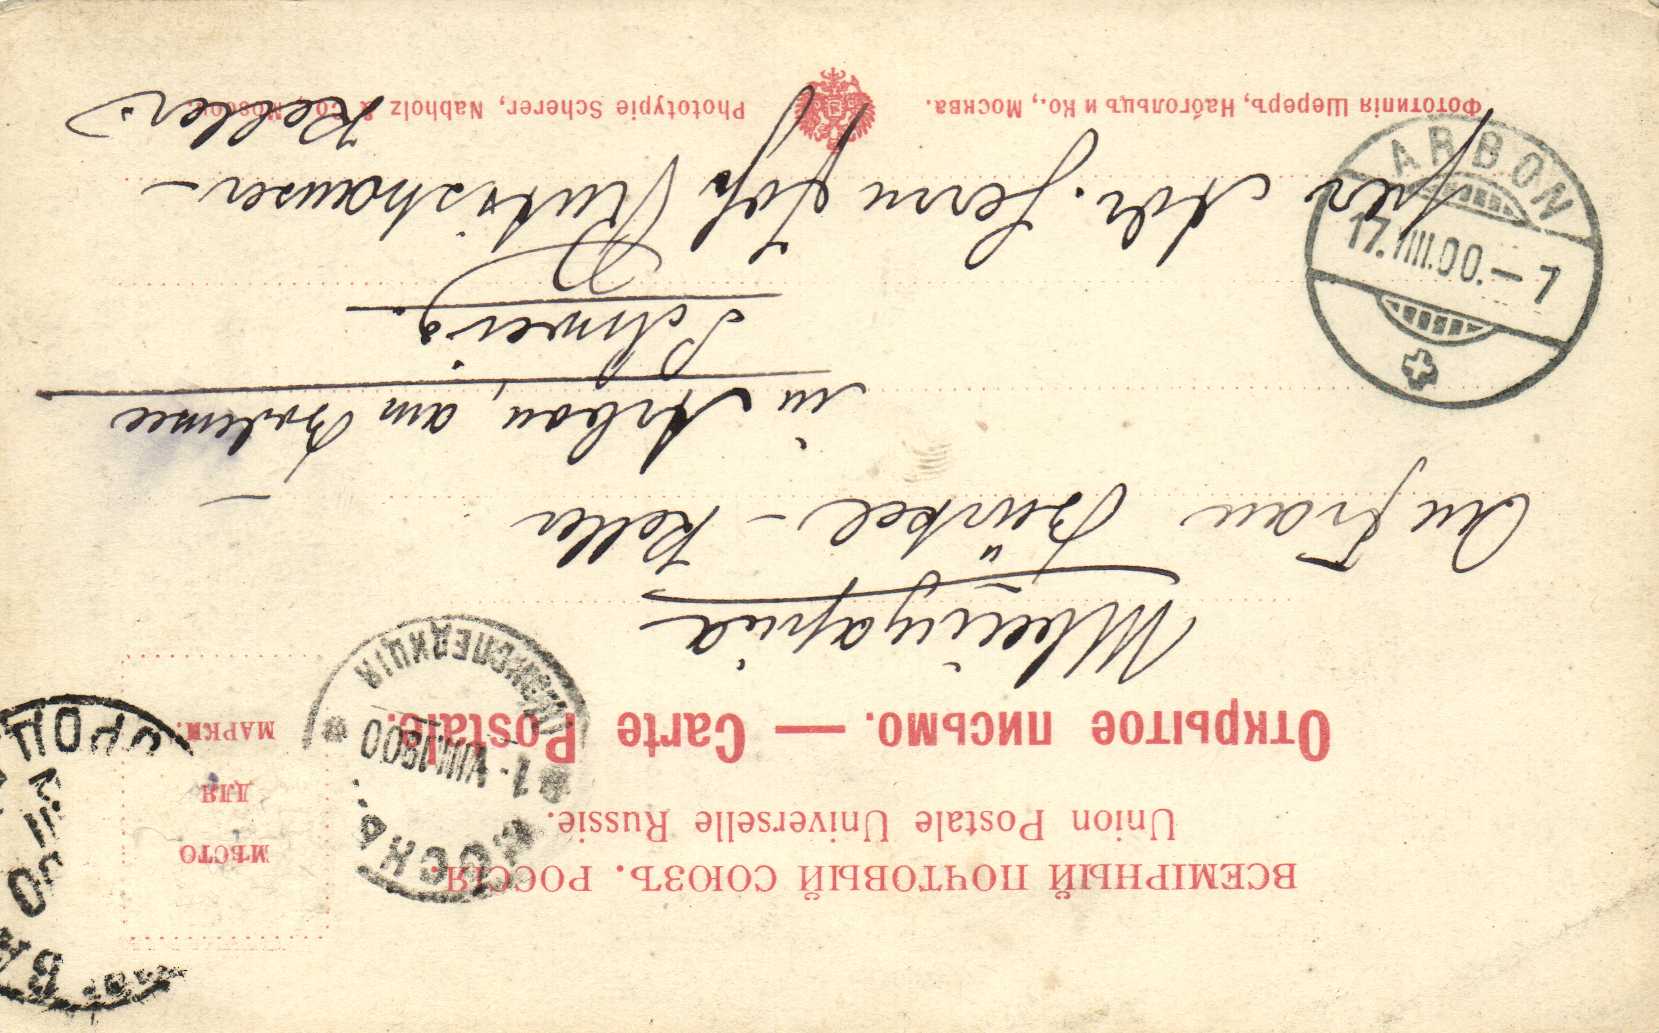 ВСЕМІРНЫЙ ПОЧТОВЫЙ СОЮЗЪ. РОССІЯ.
Union Postale Universelle Russie.
Открытое письмо. — Carte Postale.
МѢСТО
ДЛЯ
МАРКИ.
МОСКВА
1-VIII.1900
ЭКСПЕДИЦІЯ
Швейцарія
An Frau Bürkel - Keller
in Arbon, am Bodensee
Schweiz.
per Adr. Herrn Joh Rutishauser -
Keller.
ARBON
17.VIII.00.–7
Фототипія Шереръ, Набгольцъ и Ко., Москва.
Phototypie Scherer, Nabholz & Co., Moscou.